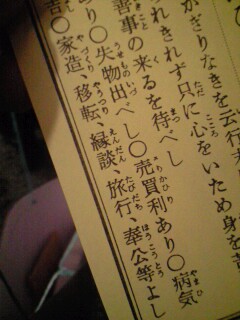 かぎりなきを云行末
れきれず只に心をいため身を
善事の来るを待べし
り〇失物出べし〇売買利あり〇病気
吉〇家造、移転、縁談、旅行、奉公等よし